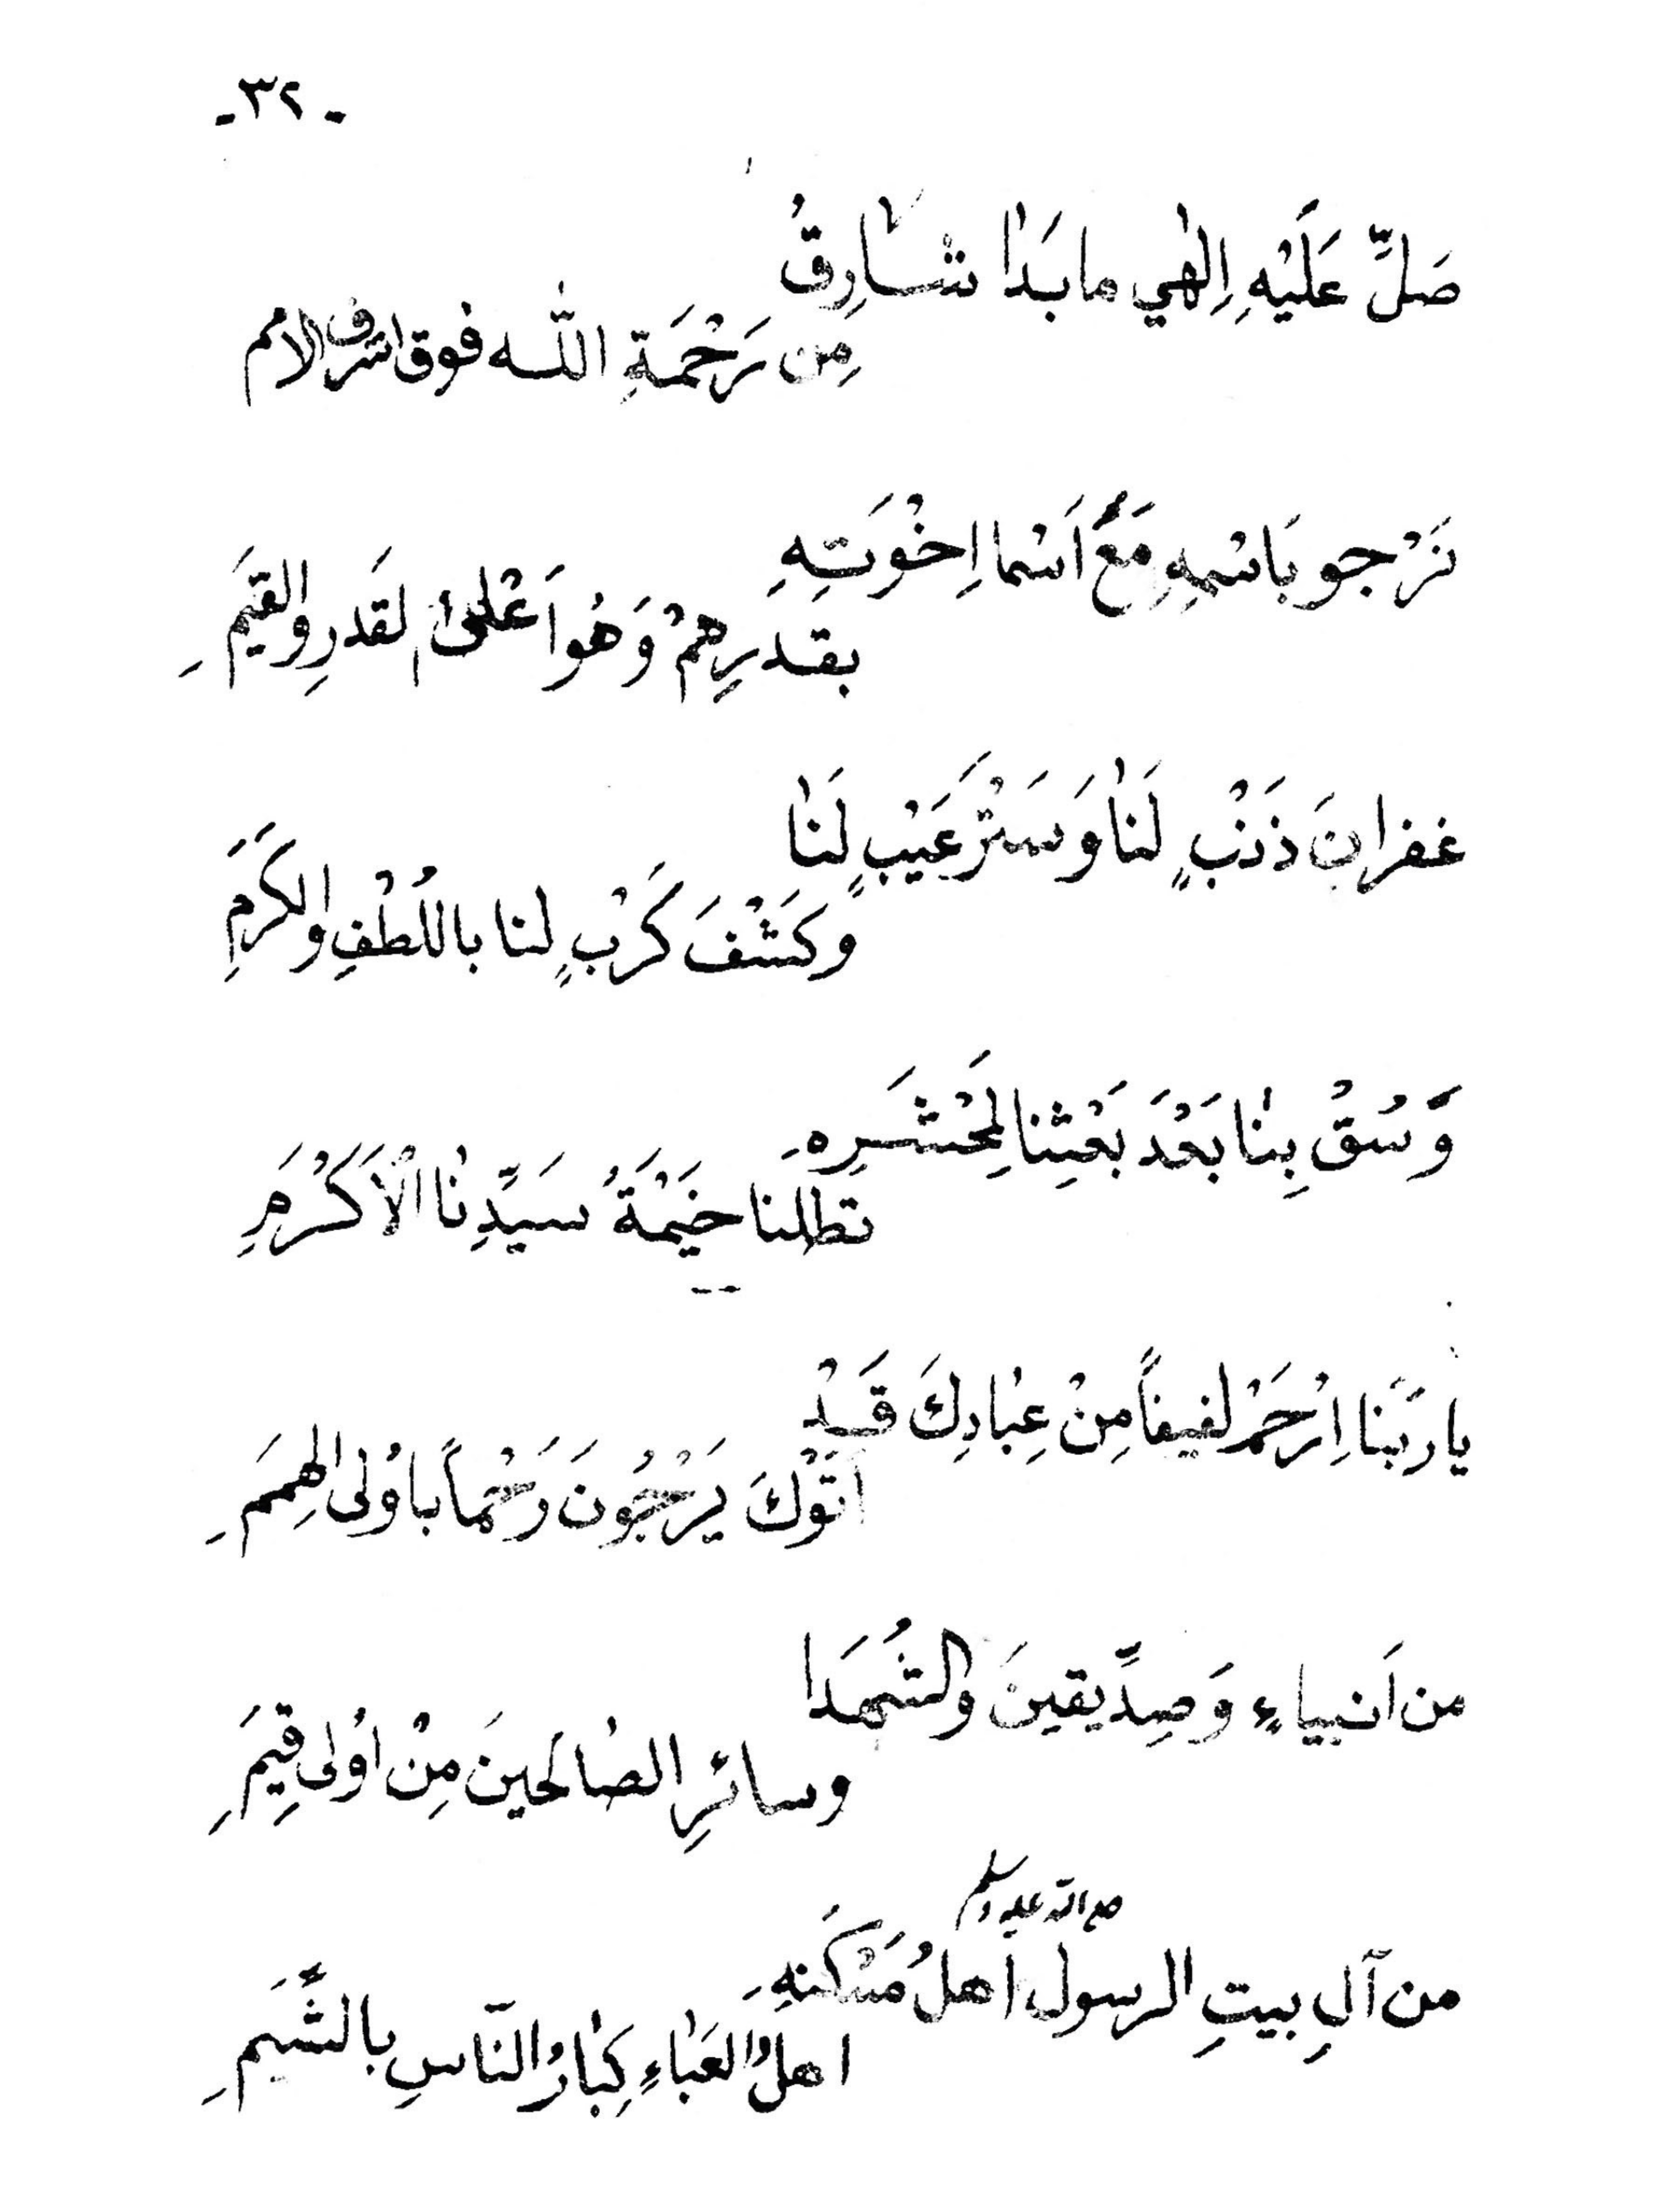 - ٣٢ -
صَلِّ عَلَيْهِ اِلٰهي ما بَدٰا شٰارِقُ
مِن رَحْمَةِ اللّٰه فوق اشرف الامم
نَرْجو بَاسْمِهِ مَعَ اَسْما اِخْوَتِهِ
بقدَرِهِمْ وَهُوا عْلىٰ لقَدرِ والقِيَمِ
غفرانَ ذَنْبٍ لَنٰا وَسَتْرَ عَيْبٍ لَنٰا
وَكَشْفَ كَرْبٍ لنا باللُطْفِ والكَرَمِ
وَسُقْ بِنٰا بَعْدَ بَعْثِنا لِمَحْشَرِهِ
تظلنا خَيْمَةُ سَيِّدِنٰا الْاَكْرَمِ
يا رَبَنا اِرْحَمْ لفيفاً مِنْ عِبٰادِكَ قَدْ
اَتَوْكَ يَرْجُونَ رَحْماً باوُلى الهِمَمِ
من اَنبياءٍ وَصِدِّيقينَ والشُهَدَا
وسائرِ الصٰالَحينَ مِنْ اوُلى قِيَمِ
صلى الله عليه وسلم
من آلِ بيتِ الرسول اهلُ مَسْكَنهِ
اهلُ العَبٰاءِ كِبٰارُ النّاسِ بالشِّيَمِ